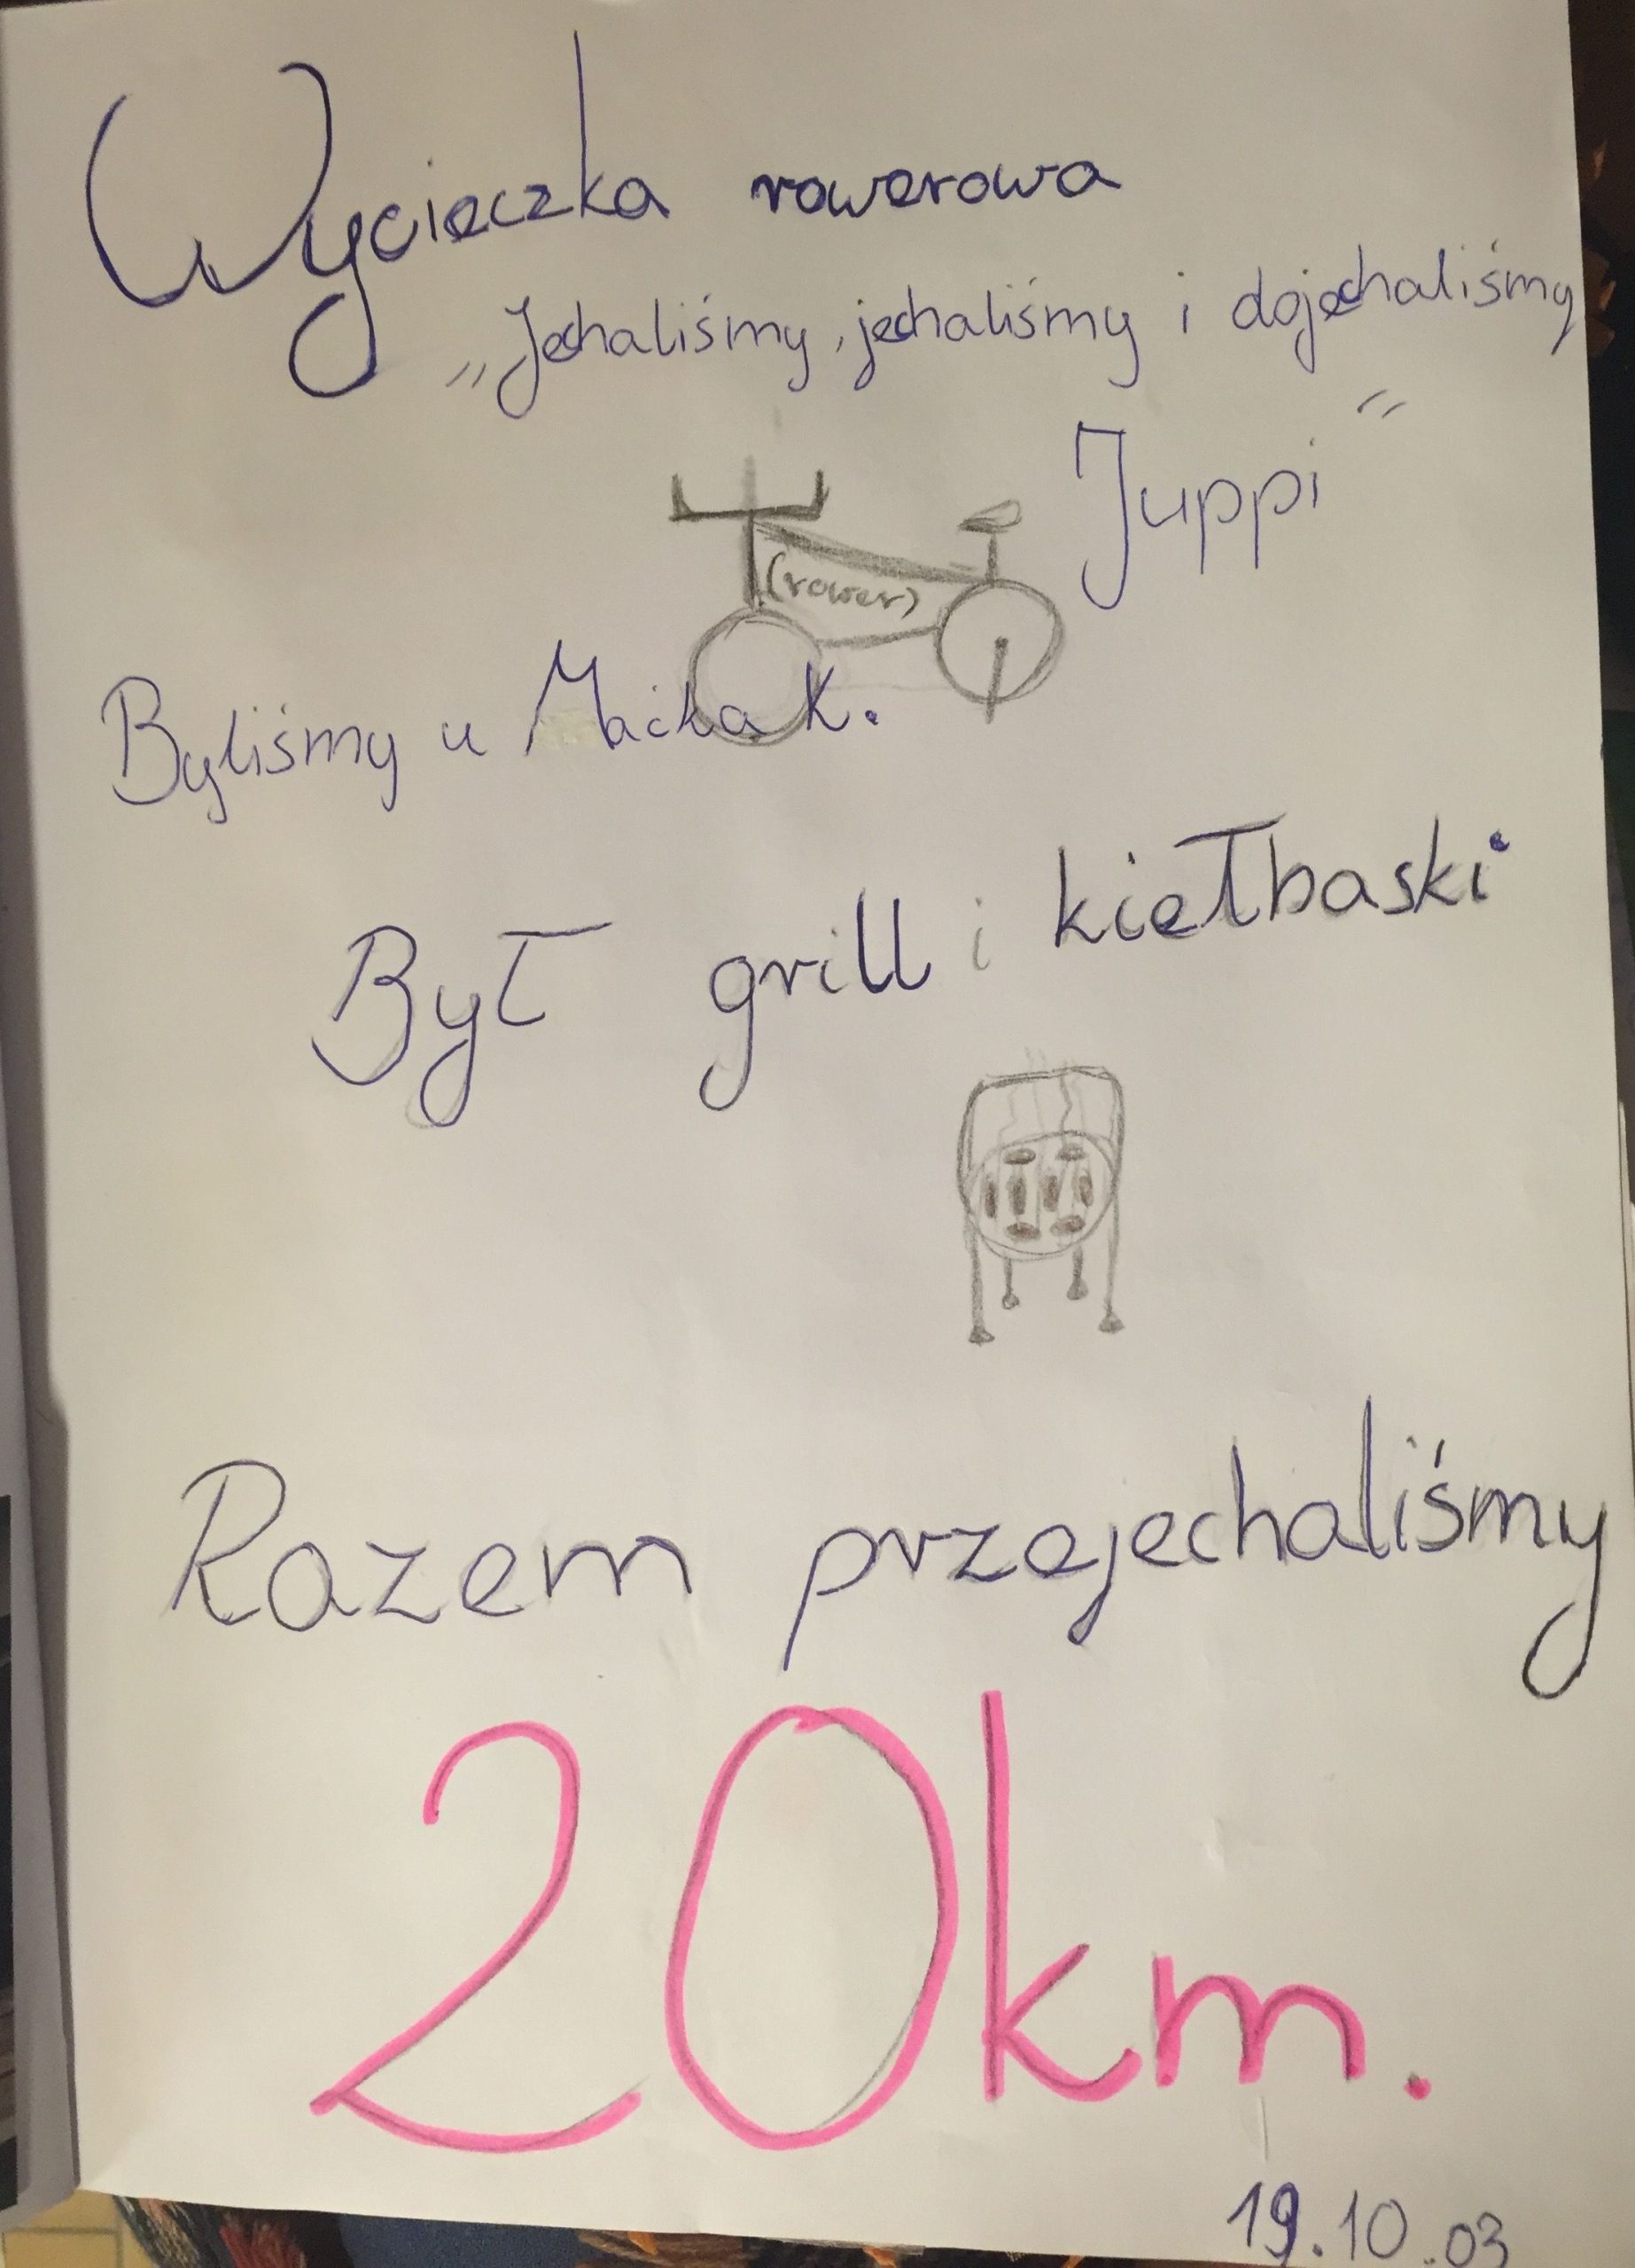 Wycieczka rowerowa
„Jechaliśmy, jechaliśmy i dojechaliśmy
Juppi”
(rower)
Byliśmy u Maćka K.
Był grill i kiełbaski
Razem przejechaliśmy
20km.
19.10.03